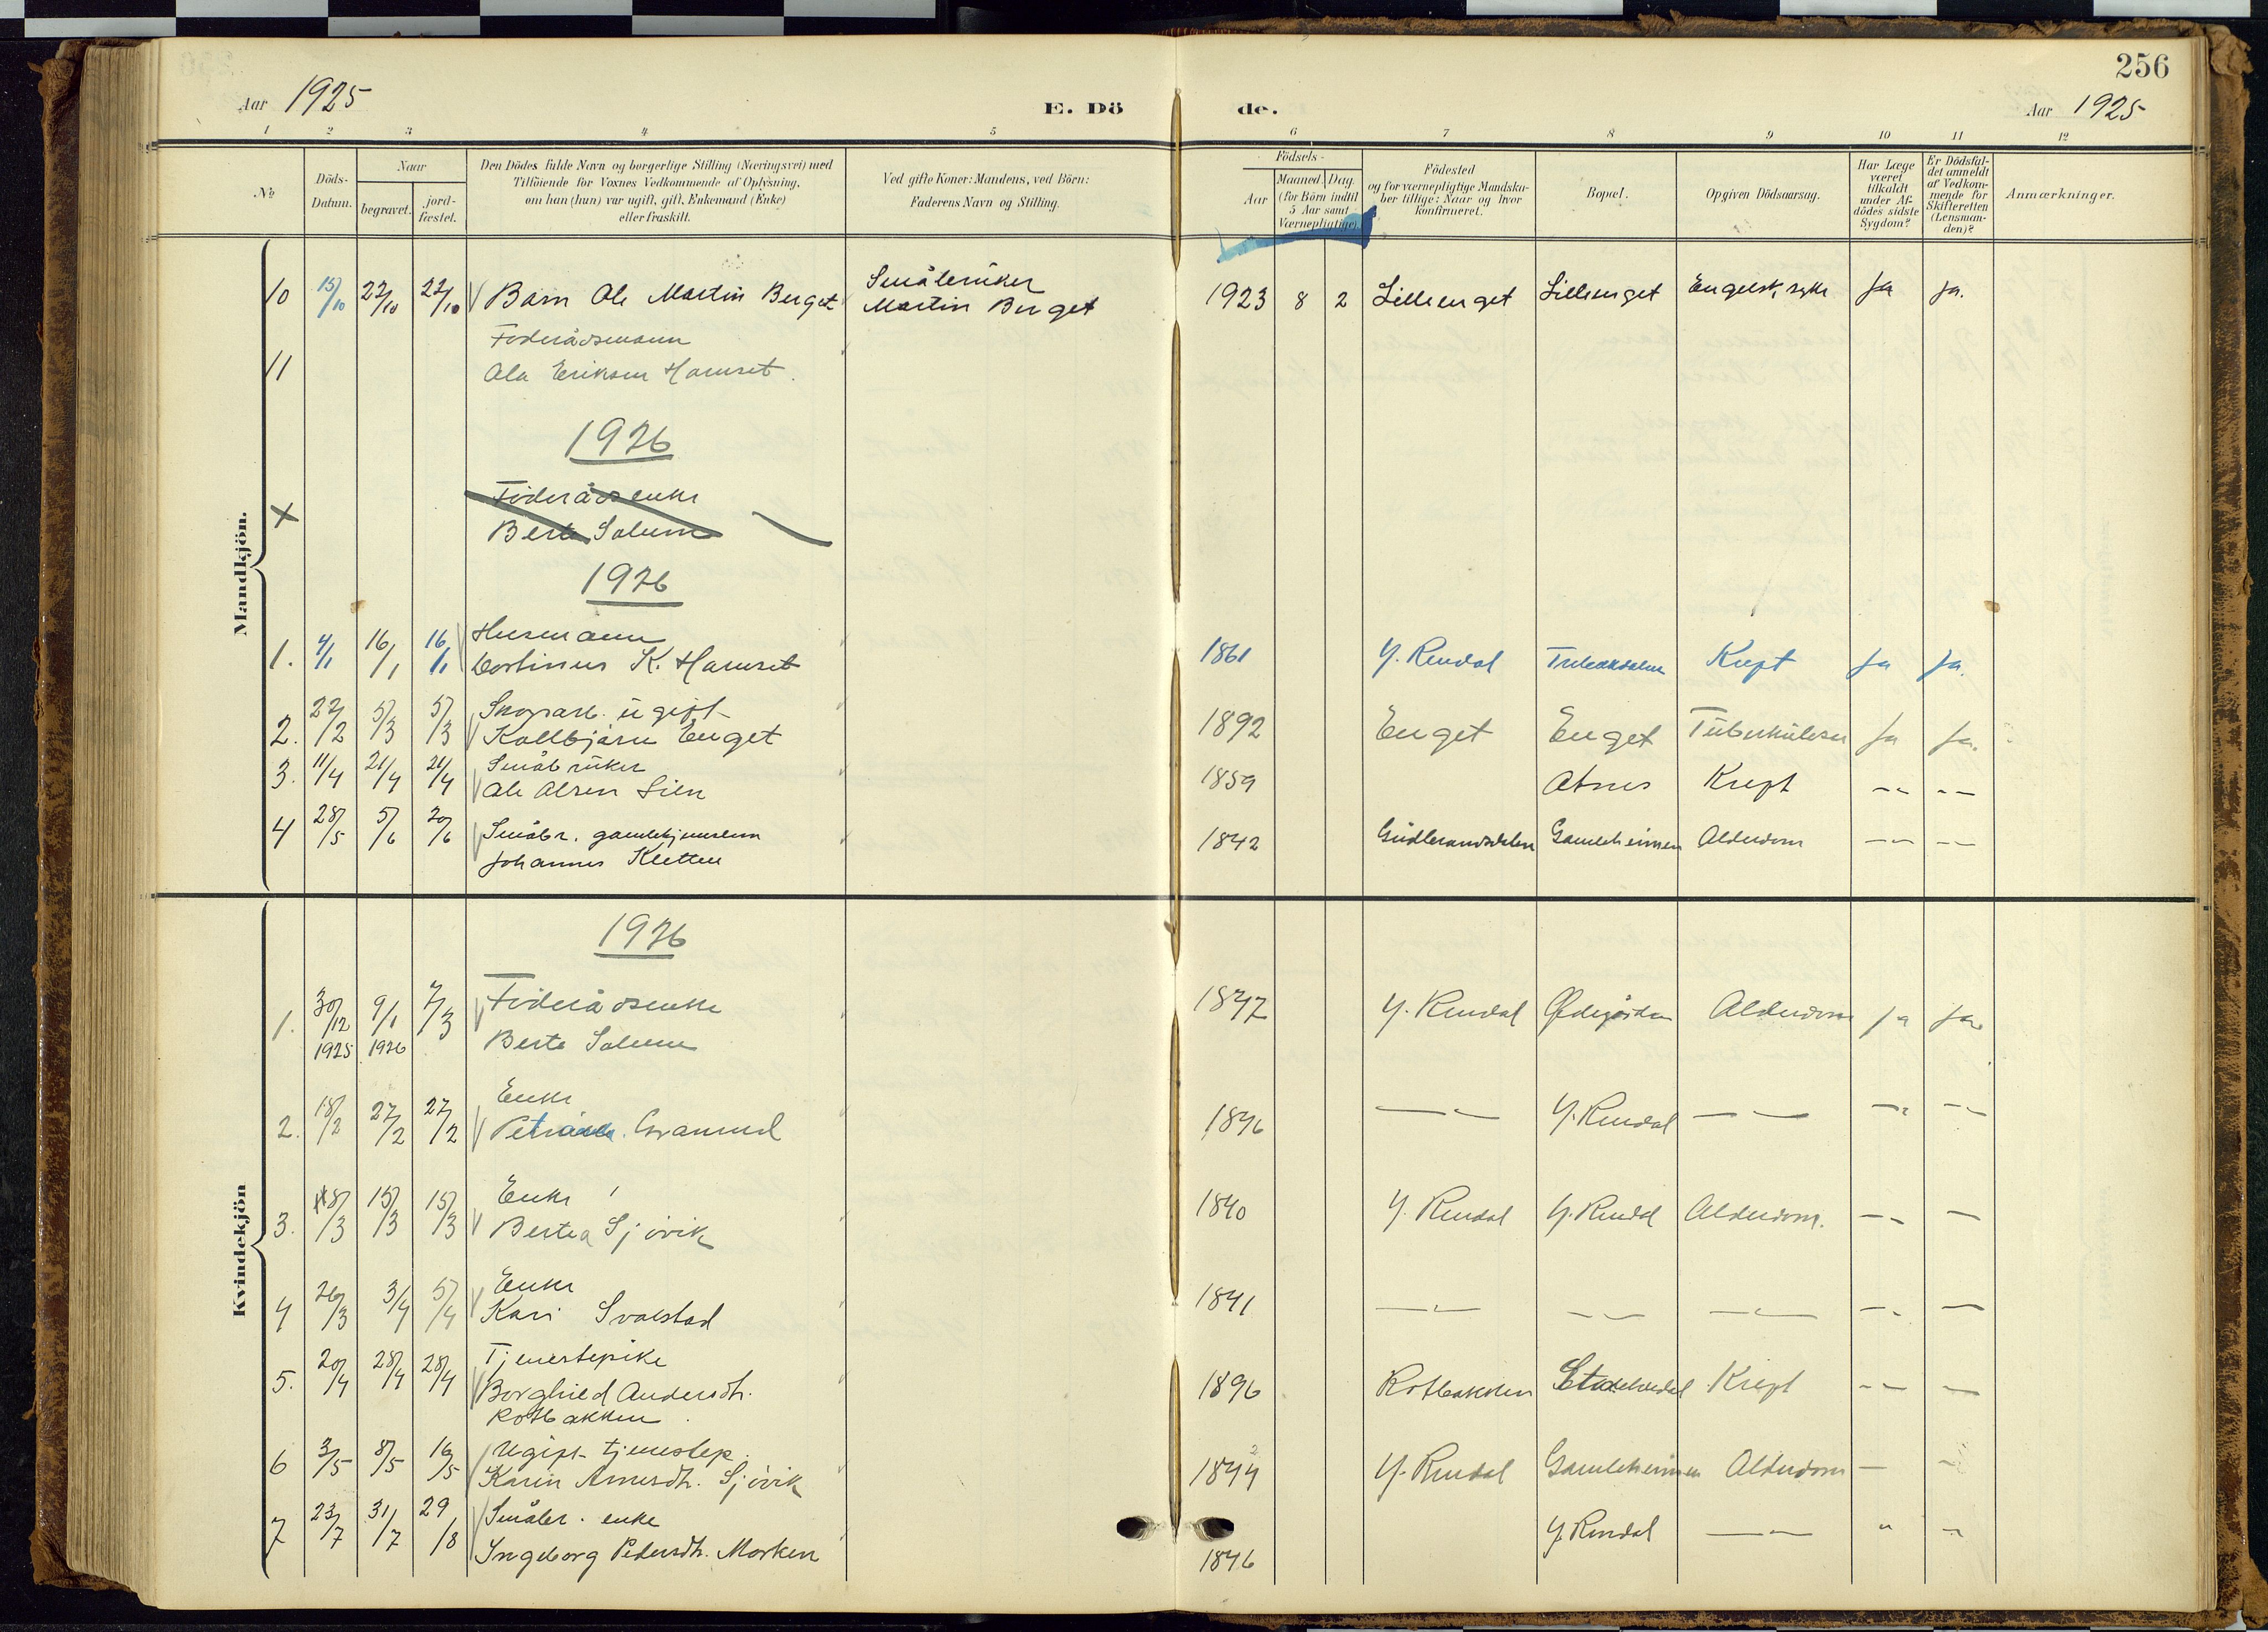 256
Aar 1925
E. Dö de.
Aar 1925
1 2 3 4 5 6 7 8 9 10 11 12
No
Döds-
Datum.
Naar
begravet.
jord-
fæstet.
Den Dödes fulde Navn og borgerlige Stilling (Næringsvei) med
Tilföiende for Voxnes Vedkommende af Oplysning,
om han (hun) var ugift, gift, Enkemand (Enke)
eller fraskilt.
Ved gifte Koner: Mandens, ved Börn:
Faderens Navn og Stilling.
Födsels-
Aar
Maaned. Dag.
(for Börn indtil
5 Aar samt
Værnepligtige).
Födested
og for værnepligtige Mandska-
ber tillige: Naar og hvor
konfirmeret.
Bopæl.
Opgiven Dödsaarsag.
Har Læge
været
tilkaldt
under Af-
dödes sidste
Sygdom?
Er Dödsfal-
det anmeldt
af Vedkom-
mende for
Skifteretten
(Lensman-
den)?
Anmærkninger.
Mandkjön.
Småbruker
10 15/10 22/10 22/10 Barn Ole Martin Berget Martin Berget 1923 8 2 Lillenget Lillenget Engelsk syke Ja Ja.
Foderådsmann
11 Ola Eriksen Harnset
1926
Föderådsenke
x Berte Solum
1926
Husmann
1. 4/1 16/1 16/1 K. Harnset 1861 Y. Rendal Kreft Ja Ja.
2. 22/2 5/3 5/3 Skogsarb. ugift
Kollbjørn Enget 1892 Enget Enget Tuberkulose Ja Ja.
3. 11/4 21/4 21/4 Småbruker
Ole Olsen Lien 1859 Atnes Kreft -"- -"-
4 28/5 5/6 20/6 Småbr. gamlehjemslem
Johannes Kletten 1842 Gudbrandsdalen Gamleheimen Alderdom -"- -"-
Kvindekjön
1926
1. 30/12 1925 9/1 1926 7/3 Föderådsenke
Berte Solum 1847 Y. Rendal Ødegården Alderdom Ja Ja
Enke
2. 18/2 27/2 27/2 Granrud 1846 -"- Y. Rendal -"- -"- -"-
Enke
3. 8/3 15/3 15/3 Bertea Sjövik 1840 Y. Rendal Y. Rendal Alderdom. -"- -
Enke
4 26/3 3/4 5/4 Kari Svalstad 1841 -"- -"- -"- -"- -
Tjenestepike
5. 20/4 28/4 28/4 Borghild Andersdtr. 1896 Rotbakken Kreft -"- -
Rotbakken
6 3/5 8/5 16/5 Ugift tjenestep.
Karin Arnesdtr. Sjövik 1844 2 Y. Rendal Gamleheimen Alderdom - -
7 23/7 31/7 29/8 Småbr. enke Y. Rendal -"- " -"-
Ingeborg Pedersdtr. Morken 1846